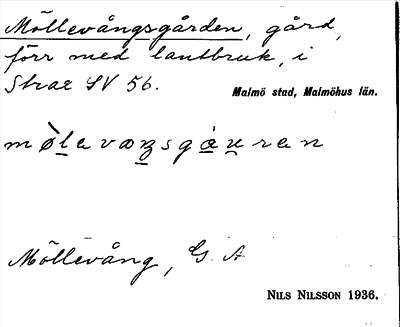 Möllevångsgården, gård,
förr med lantbruk, i
SV 56.
Malmö stad, Malmöhus län.
Möllevång, G. A
NILS NILSSON 1936.